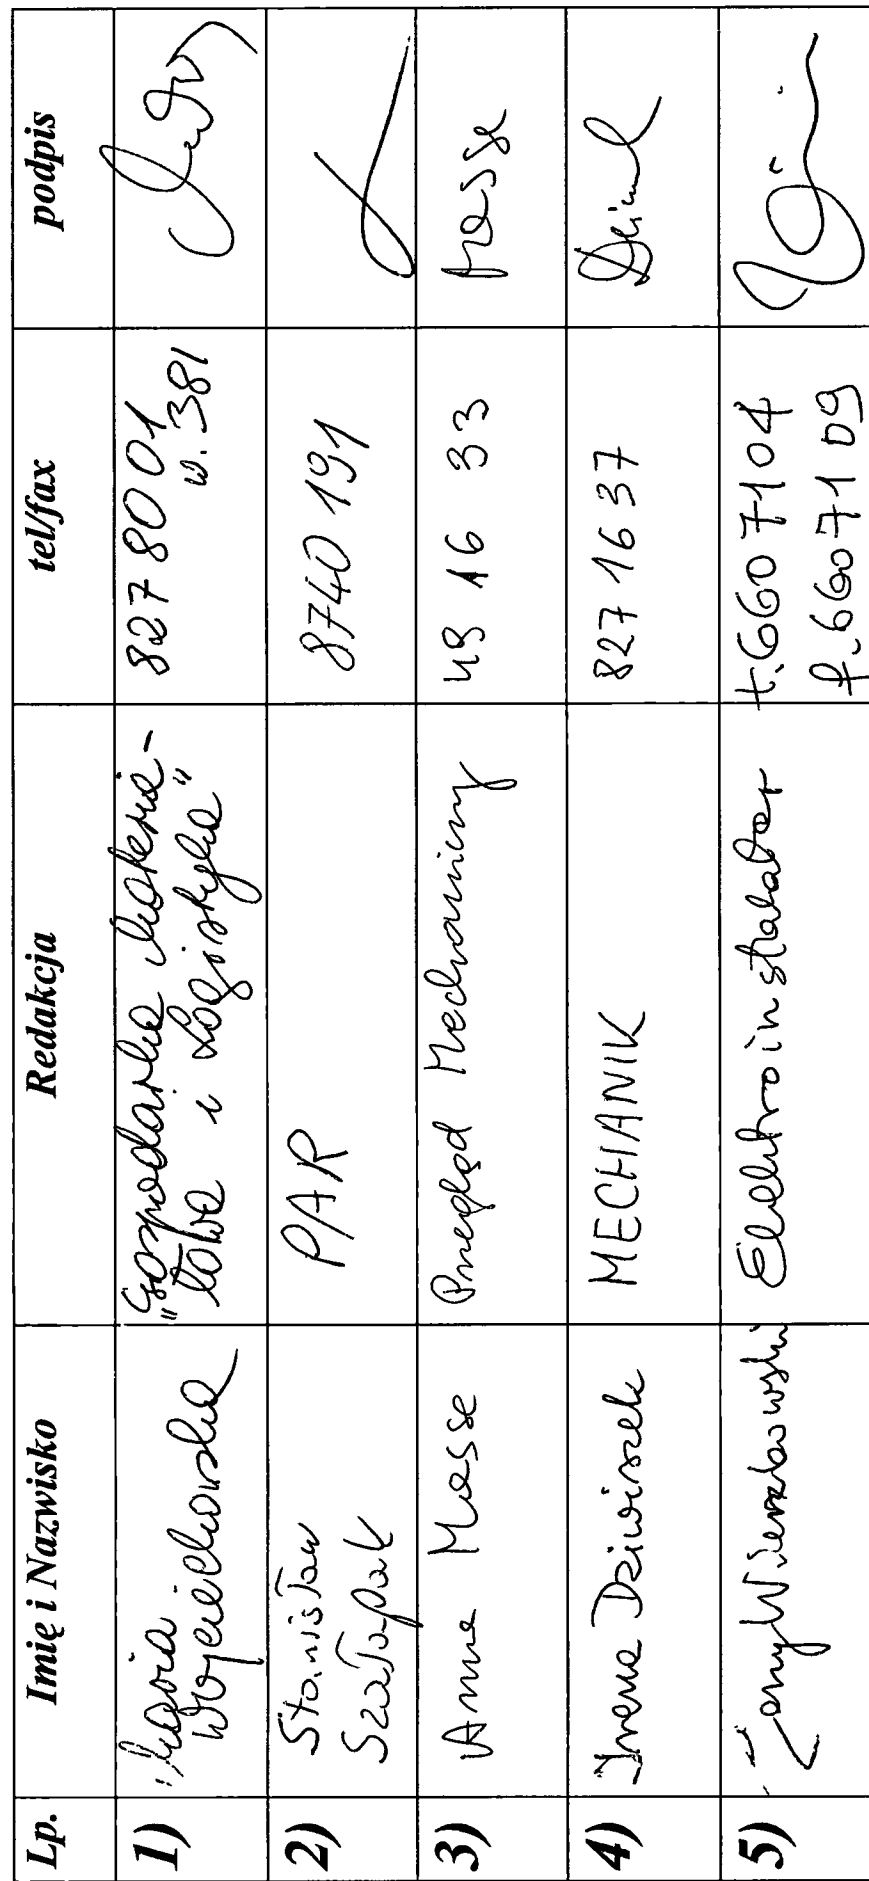 Lp. Imię i Nazwisko Redakcja tel/fax podpis
1) Maria Wojciechowska "Gospodarka Materia-
łowa i Logistyka" 827 80 01
w. 381
2) Stanisław
Szałapak PAR 8740 191
3) Anna Masse Przegląd Mechaniczny 49 16 33 Masse
4) Irena Dziwiszek MECHANIK 827 16 37
5) Jerzy Wierzbowski Elektroinstalator t. 660 71 04
f. 660 71 09